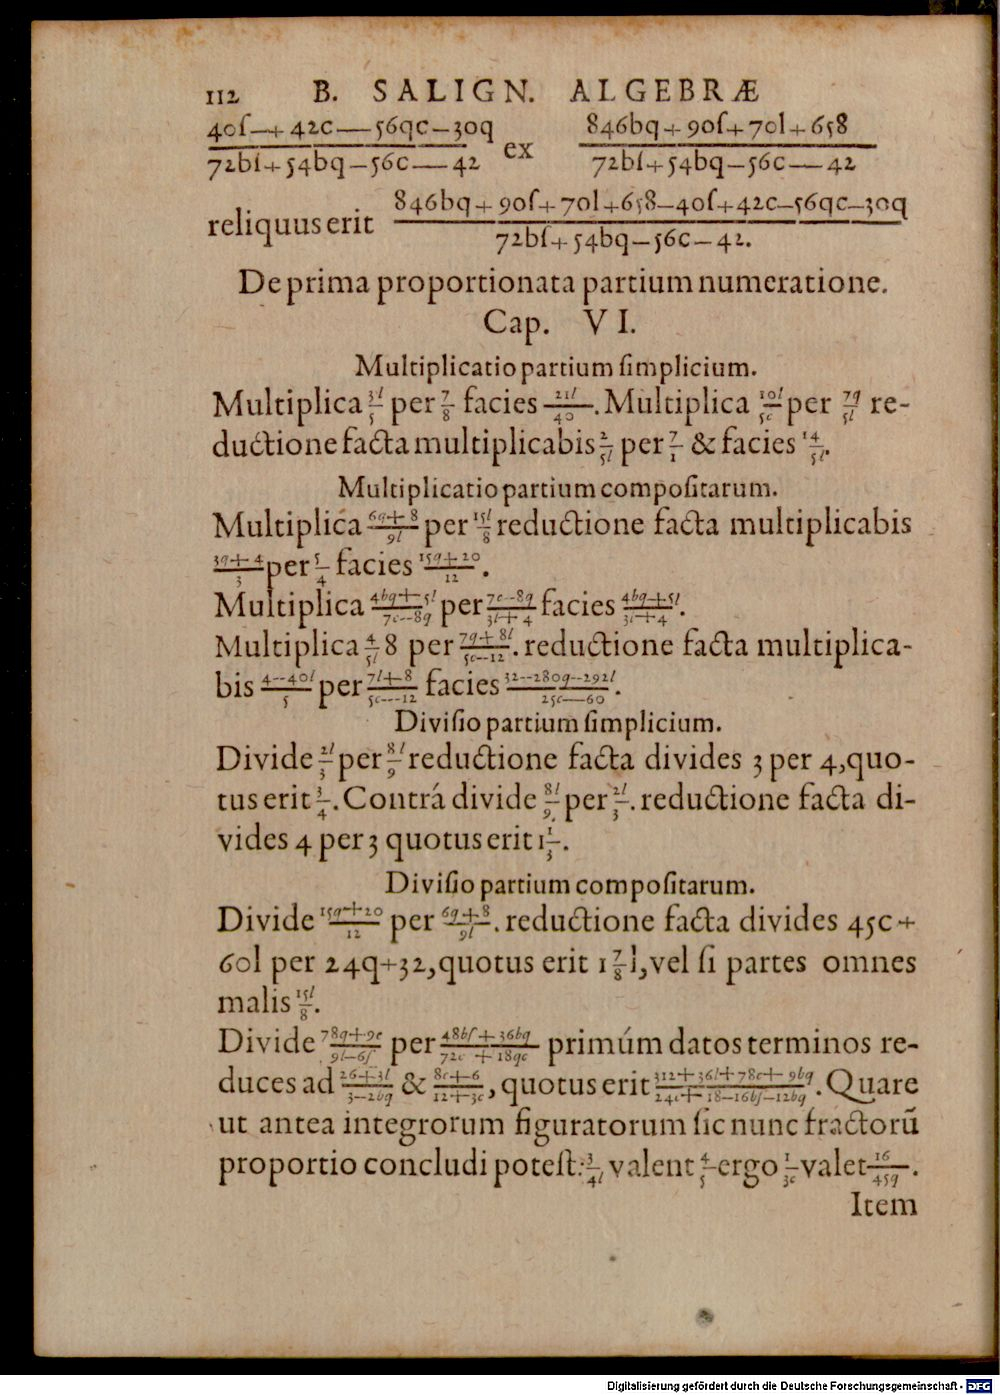 112 B. SALIGN. ALGEBRÆ
40ſ—+42c—56qc—30q / 72bſ+54bq—56c—42 ex 846bq+90ſ+70l+658 / 72bſ+54bq—56c—42
reliquus erit 846bq+90ſ+70l+658—40ſ+42c—56qc—30q / 72bſ+54bq—56c—42.
De prima proportionata partium numeratione.
Cap. VI.
Multiplicatio partium ſimplicium.
Multiplica 3l/5 per 7/8 facies 21l/40. Multiplica 10l/5c per 7q/5l re-
ductione facta multiplicabis 2/5l per 7/1 & facies 14/5l.
Multiplicatio partium compoſitarum.
Multiplica 6q+8/9l per 15l/8 reductione facta multiplicabis
3q+4/3 per 5/4 facies 15q+20/12.
Multiplica 4bq+5l/7c--8q per 7c--8q/3l+4 facies 4bq+5l/3l+4.
Multiplica 4/5l 8 per 7q+8l/5c--12. reductione facta multiplica-
bis 4--40l/5 per 7l+8/5c---12 facies 32--280q--292l/25c—60.
Diviſio partium ſimplicium.
Divide 2l/3 per 8l/9 reductione facta divides 3 per 4, quo-
tus erit 3/4. Contrá divide 8l/9 per 2l/3. reductione facta di-
vides 4 per 3 quotus erit 1 1/3.
Diviſio partium compoſitarum.
Divide 15q+20/12 per 6q+8/9l. reductione facta divides 45c+
60l per 24q+32, quotus erit 1 7/8 l, vel ſi partes omnes
malis 15l/8.
Divide 78q+9c/9l—6ſ per 48bſ+36bq/72c+18qc primúm datos terminos re-
duces ad 26+3l/3—2bq & 8c+6/12+3c, quotus erit 312+36l+78c+9bq/24c+18—16bſ—12bq. Quare
ut antea integrorum figuratorum ſic nunc fractorũ
proportio concludi poteſt: 3/4l valent 4/5 ergo 1/3c valet 16/45q.
Item
Digitalisierung gefördert durch die Deutsche Forschungsgemeinschaft - DFG